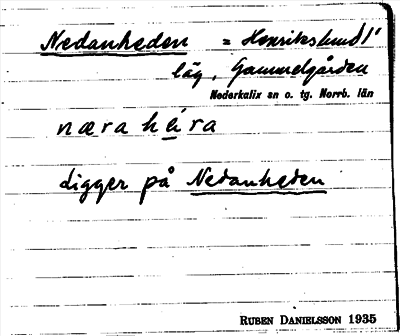 Nedanheden = Henrikslund 1'
läg, Gammelgården
Nederkalix sn o. tg. Norrb. län
næra héra
digger på Nedanheden
RUBEN DANIELSSON 1935